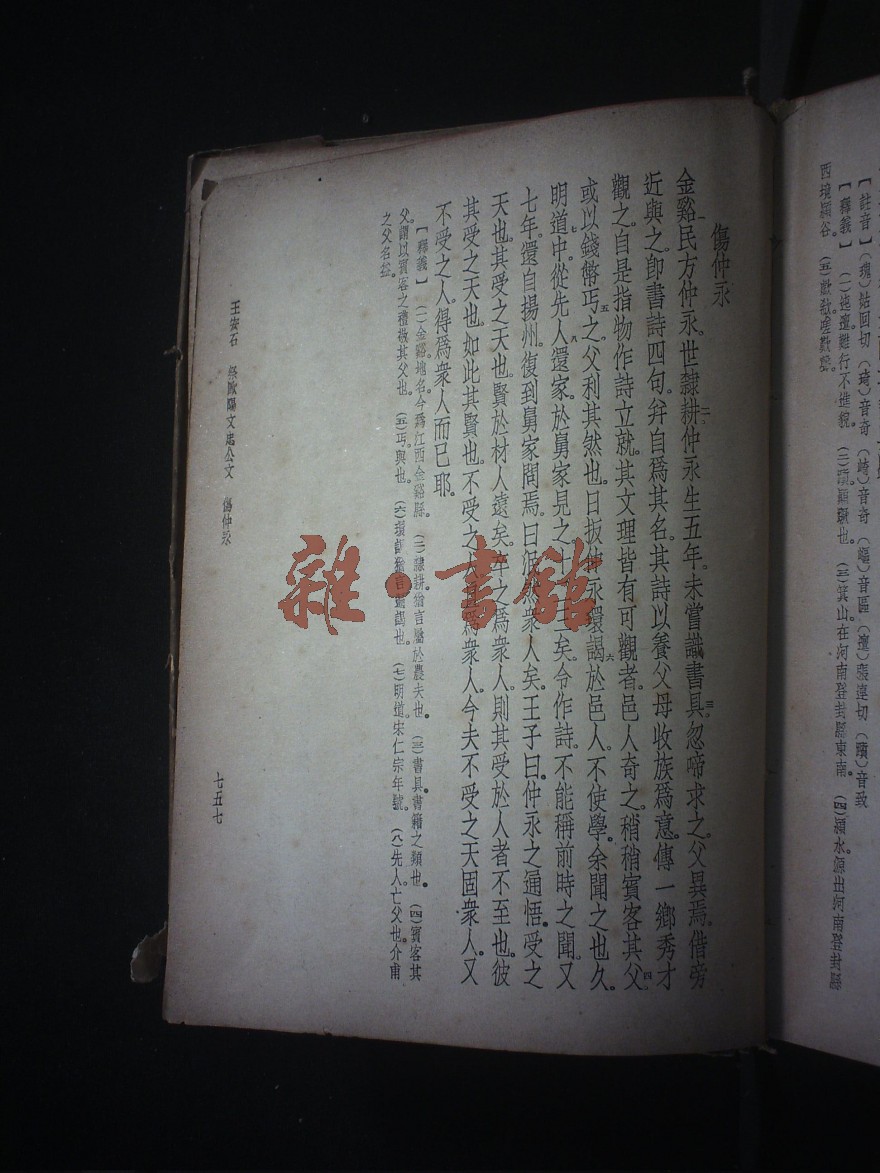 【註音】（瑰）姑回切（琦）音奇（崎）音奇（嶇）音區（邅）張連切（躓）音致
【釋義】（一）迍邅難行不進貌。（二）躓顛躓也。（三）箕山在河南登封縣東南。（四）潁水源出河南登封縣
西境潁谷。（五）歔欷悲歎聲。
傷仲永
金谿一民方仲永。世隸耕二。仲永生五年。未嘗識書具三。忽啼求之。父異焉。借旁
近與之。卽書詩四句。幷自爲其名。其詩以養父母收族爲意。傳一鄉秀才
觀之。自是指物作詩立就。其文理皆有可觀者。邑人奇之。稍稍賓客其父四。
或以錢幣丐五之。父利其然也。日扳仲永環謁六於邑人。不使學。余聞之也久。
明道七中。從先人八還家。於舅家見之。十二三矣。令作詩。不能稱前時之聞。又
七年。還自揚州。復到舅家問焉。曰泯然衆人矣。王子曰。仲永之通悟。受之
天也。其受之天也。賢於材人遠矣。卒之爲衆人。則其受於人者不至也。彼
其受之天也。如此其賢也。不受之人。且爲衆人。今夫不受之天。固衆人。又
不受之人。得爲衆人而已耶。
【釋義】（一）金谿。地名。今爲江西金谿縣。（二）隸耕。猶言屬於農夫也。（三）書具。書籍之類也。（四）賓客其
父。謂以賓客之禮款其父也。（五）丐。與也。（六）環謁。猶言徧謁也。（七）明道。宋仁宗年號。（八）先人。亡父也。介甫
之父名益。
王安石　祭歐陽文忠公文　傷仲永
七五七
雜·書館